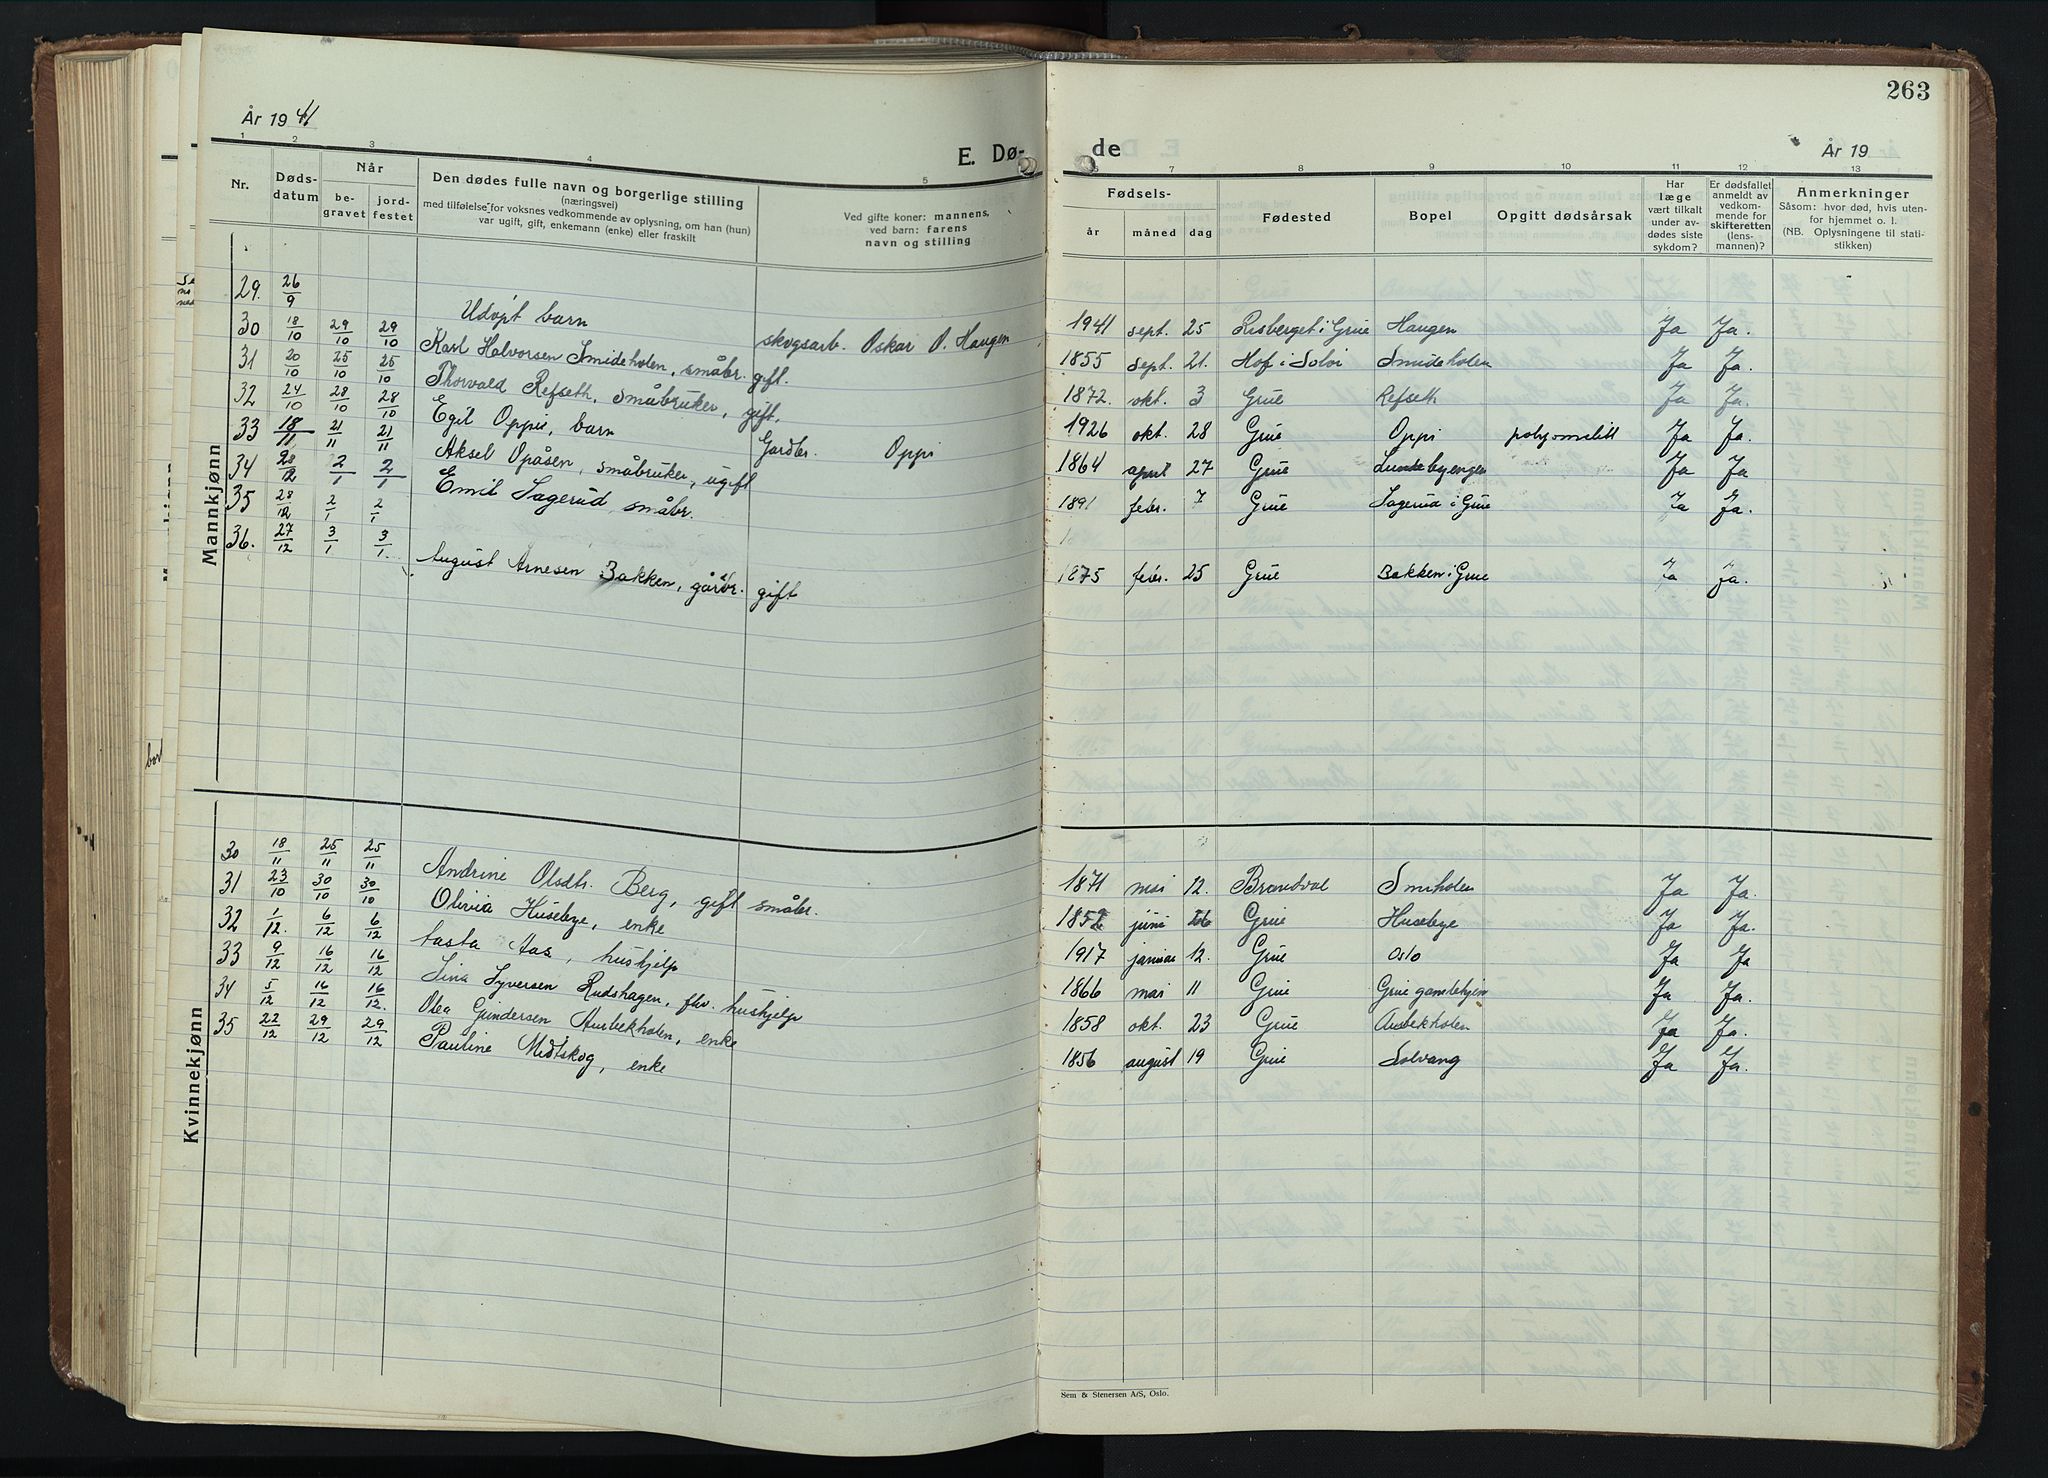 263
År 1941
E. Dø-
de
År 19
1 2 3 4 5 6 7 8 9 10 11 12 13
Nr.
Døds-
datum
Når
be-
gravet
jord-
festet
Den dødes fulle navn og borgerlige stilling
(næringsvei)
med tilføielse for voksnes vedkommende av oplysning, om han (hun)
var ugift, gift, enkemann (enke) eller fraskilt
Ved gifte koner: mannens,
ved barn: farens
navn og stilling
Fødsels-
år
måned
dag
Fødested
Bopel
Opgitt dødsårsak
Har
læge
vært tilkalt
under av-
dødes siste
sykdom?
Er dødsfallet
anmeldt av
vedkom-
mende for
skifteretten
(lens-
mannen)?
Anmerkninger
Såsom: hvor død, hvis uten-
for hjemmet o. l.
(NB. Oplysningene til stati-
stikken)
Mannkjønn
29. 26/9 Udøpt barn skogsarb. Oskar O. Haugen 1941 sept. 25 Risberget i Grue Haugen Ja Ja.
30 18/10 29/10 29/10 Karl Halvorsen Smideholen, småbr. gift. 1855 sept. 21. Hof i Solør Smideholen Ja Ja.
31 20/10 25/10 25/10 Thorvald Refseth, småbruker, gift, 1872. okt. 3 Grue Refseth Ja Ja.
32 24/10 28/10 28/10 Egil Oppi, barn Gardbr. Oppi 1926 okt. 28 Grue Oppi Ja Ja.
33 18/11 21/11 21/11 Aksel Opåsen, småbruker, ugift 1864 april 27 Grue Lundebyengen Ja Ja.
34 28/12 2/1 2/1 Emil Sagerud, småbr. 1891 febr. 7 Grue Sagerud i Grue Ja Ja.
35 28/12 2/1 2/1
36. 27/12 3/1 3/1. August Arnesen Bakken, gårbr. gift 1875 febr. 25 Grue Bakken i Grue Ja Ja.
Kvinnekjønn
30 18/11 25/11 25/11 Andrine Olsdtr. Berg, gift småbr. 1871 mai 12. Brandval Smiholen Ja Ja.
31 23/10 30/10 30/10 Olivia Husebye, enke juni 26 Grue Husebye Ja Ja.
32 1/12. 6/12 6/12 Aasta Aas, hushjelp 1917 januar 12. Grue Oslo Ja Ja
33 9/12 16/12 16/12 Lina Syversen Rudshagen, fhv. hushjelp 1866 mai 11 Grue Grue gamlehjem Ja Ja.
34 5/12 16/12 16/12. Olea Gundersen Aurbekholen, enke 1858 okt. 23 Grue Aurbekholen Ja Ja.
35 22/12 29/12 29/12 Pauline Midtskog, enke 1856 august 19 Grue Solvang Ja Ja.
Sem & Stenersen A/S, Oslo.